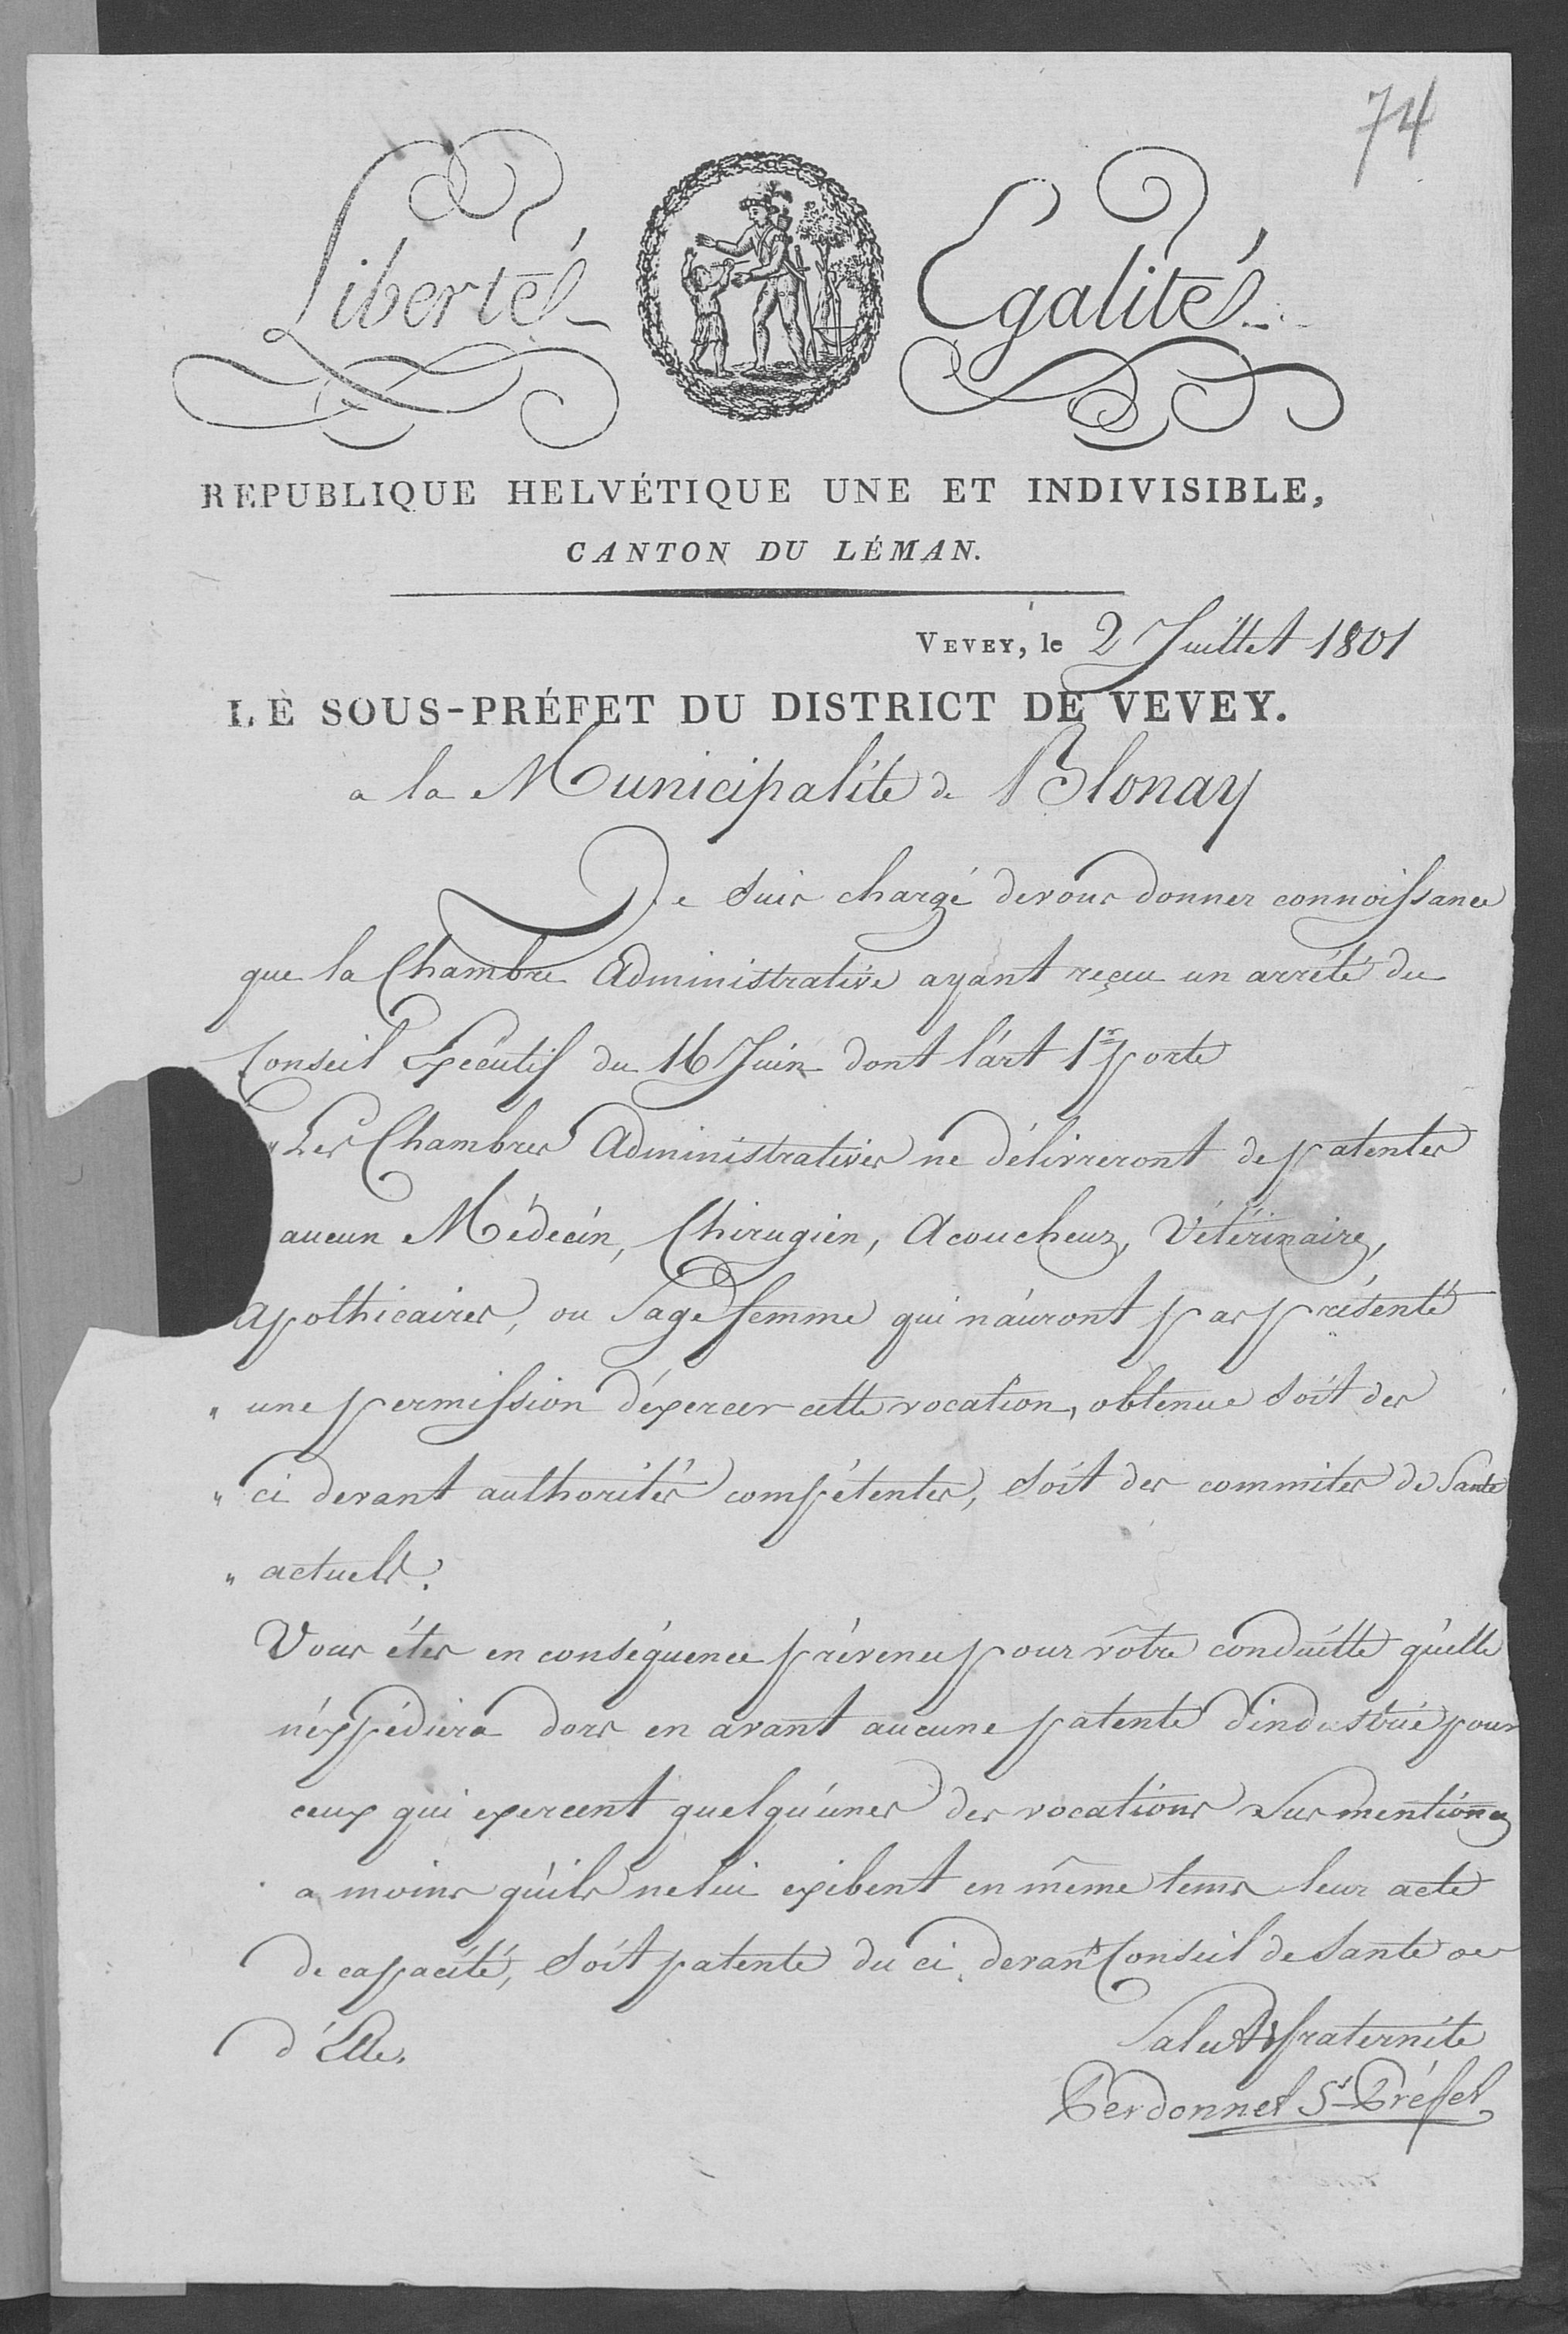 74
Liberté Egalité
REPUBLIQUE HELVÉTIQUE UNE ET INDIVISIBLE,
CANTON DU LÉMAN.
VEVEY, le 2 Juillet 1801
LE SOUS-PRÉFET DU DISTRICT DE VEVEY.
a la Municipalité de Blonay
Je suis chargé de vous donner connoissance
que la Chambre Administrative ayant reçeu un arrété du
Conseil Exécutif du 16 Juin dont l'art 1r porte
" Les Chambres Administratives ne délivreront de patentes
aucun Médecin, Chirugien, Acoucheur, Vétérinaire,
apothicaires, ou Sage femme qui n'auront pas présenté
" une permission d'éxercer cette vocation, obtenue soit des
" ci devant authorités compétentes, soit des commites de Santé
" actuels.
Vous étes en conséquence prévenu pour vôtre conduitte qu'elle
n'éxpédiera dors en avant aucune patente d'industrie pour
ceux qui exercent quelqu'unes des vocations Sus mentionés
a moins qu'ils ne lui exibent en même tems leur acte
de capacité, soit patente du ci devant Conseil de Santé ou
d'Elle.
Salut & fraternité
Perdonnet Ss Préfet